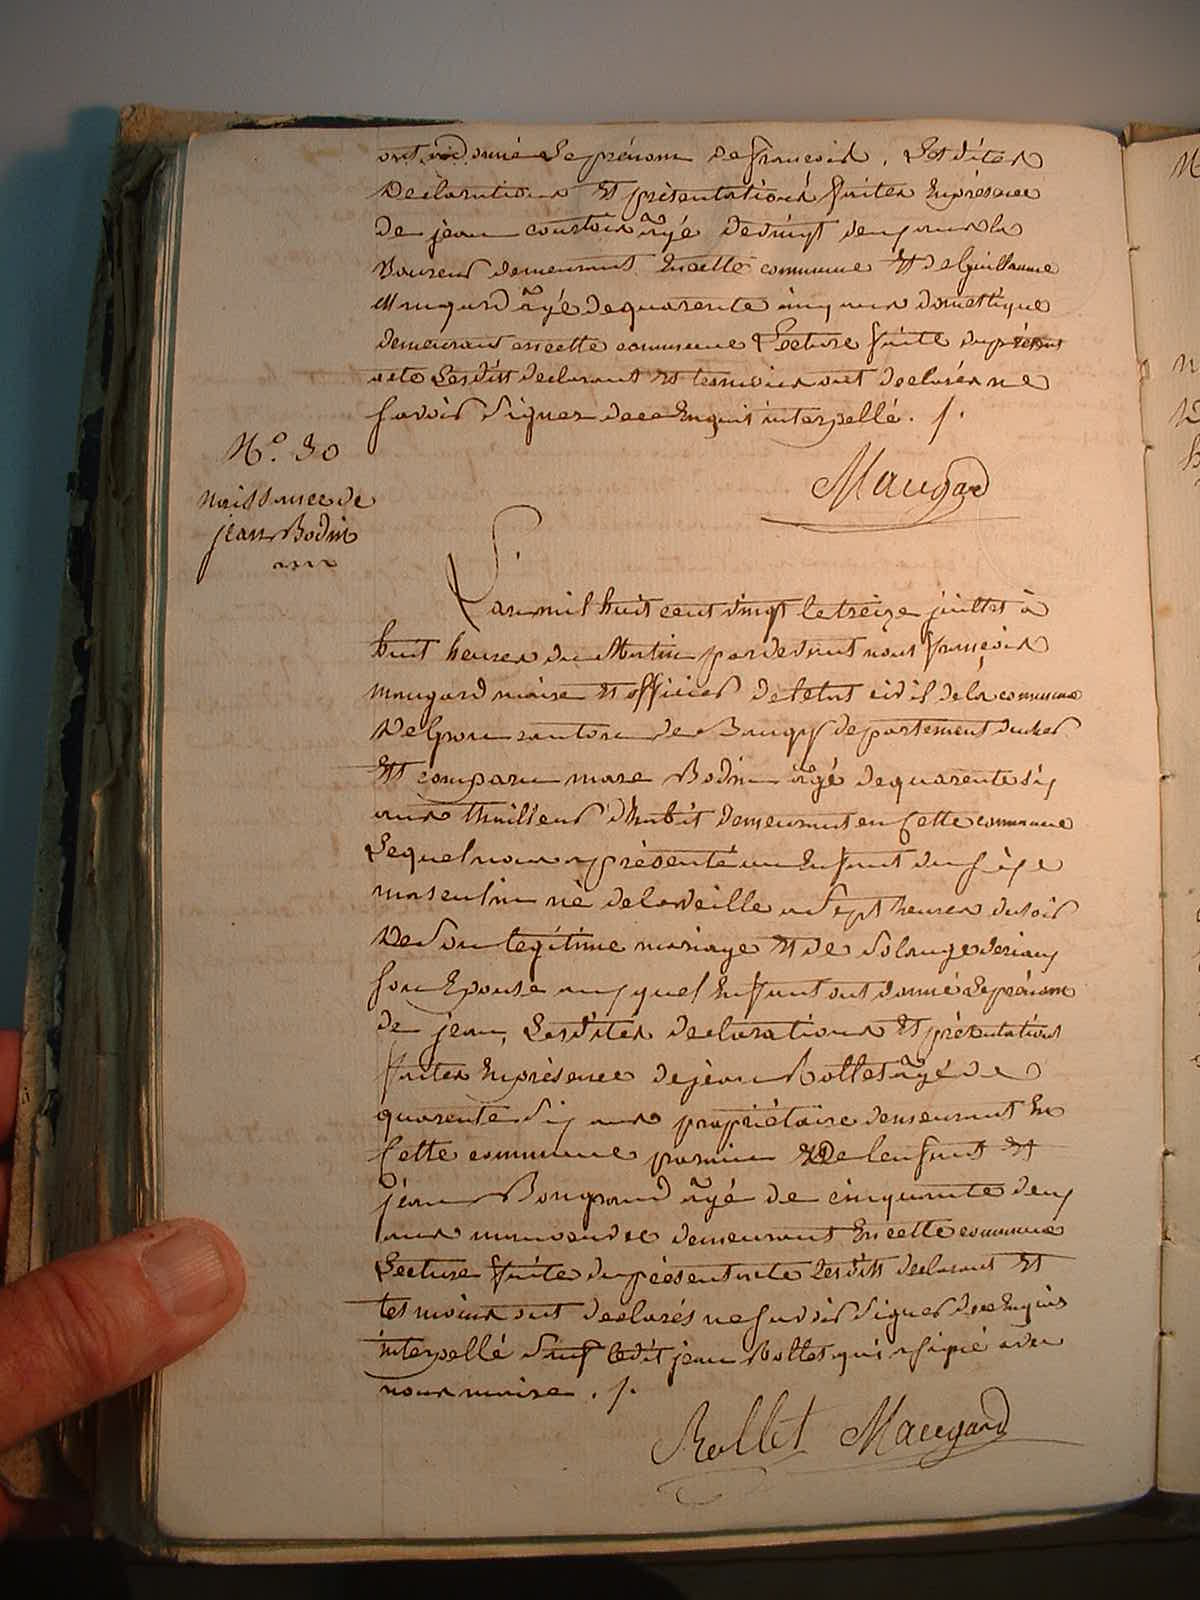 ont donné le prénom de françois. Lesdites
declarations Et présentations faites Enprésence
de jean âgé devingt deux ans la
Boureur demeurant Encette commune Et de Guillaume
Maugard âgé dequarente cinq ans domestique
demeurant encette commune Lecture faite duprésent
acte Lesdits declarant Et temoins ont declarés ne
Savoir Signer dece Enquis interpellé. /.
Maugard
N.o 30
naissance de
jean Bodin
L'an mil huit cent vingt le treize juillet à
huit heures du Matin pardevant nous françois
maugard maire Et officier deletat civil dela commune
De Gron canton de Baugy departement ducher
Est comparu marc Bodin âgé dequarente six
ans thailleur d'habit demeurant en Cette commune
Lequel nous a présenté un Enfant du Sexe
masculin né delaveille a Sept heures dusoir
De Son legitime mariage Et de Solange
Son Epouse auxquel Enfant ont donné Leprénom
de jean, Lesdites declarations Et présentations
faites Enprésence dejean Rollet âgé de
quarente Six ans propriétaire demeurant En
Cette commune parain De lenfant Et
jean Bongrand âgé de cinquante deux
ans manoeuvre demeurant Encette commune
Lecture faite duprésent acte Lesdits declarant Et
temoins ont declarés ne Savoir Signer dece Enquis
interpellé Sauf ledit jean Rollet qui a Signé avec
nous maire. /.
Rollet Maugard